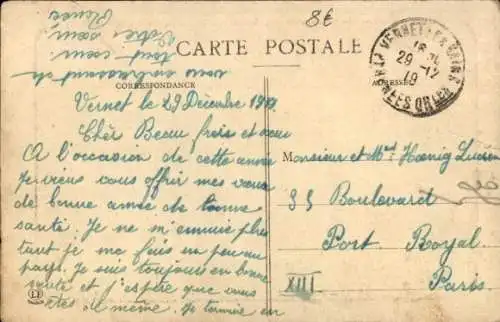 8€
CARTE POSTALE
CORRESPONDANCE
ADRESSE
VERNET-LES-BAINS
29 - 12
PYRÉNÉES ORIEN
Vernet le 29 Décembre 19
Chér Beau frois et sœur
A l'occasion de cette année
Je viens vous offrir mes vœux
de bonne année de bonne
santé. Je ne m'ennuie plus
tant je me fais en peu au
pays. Je suis toujours en bonne
santé et j'espère que vous
êtes il même. Je termine en
vous embrassant de
tout cœur
Votre sœur
Monsieur et Md Hœnig Lucien
55 Boulevard
Port Royal
Paris
XIII